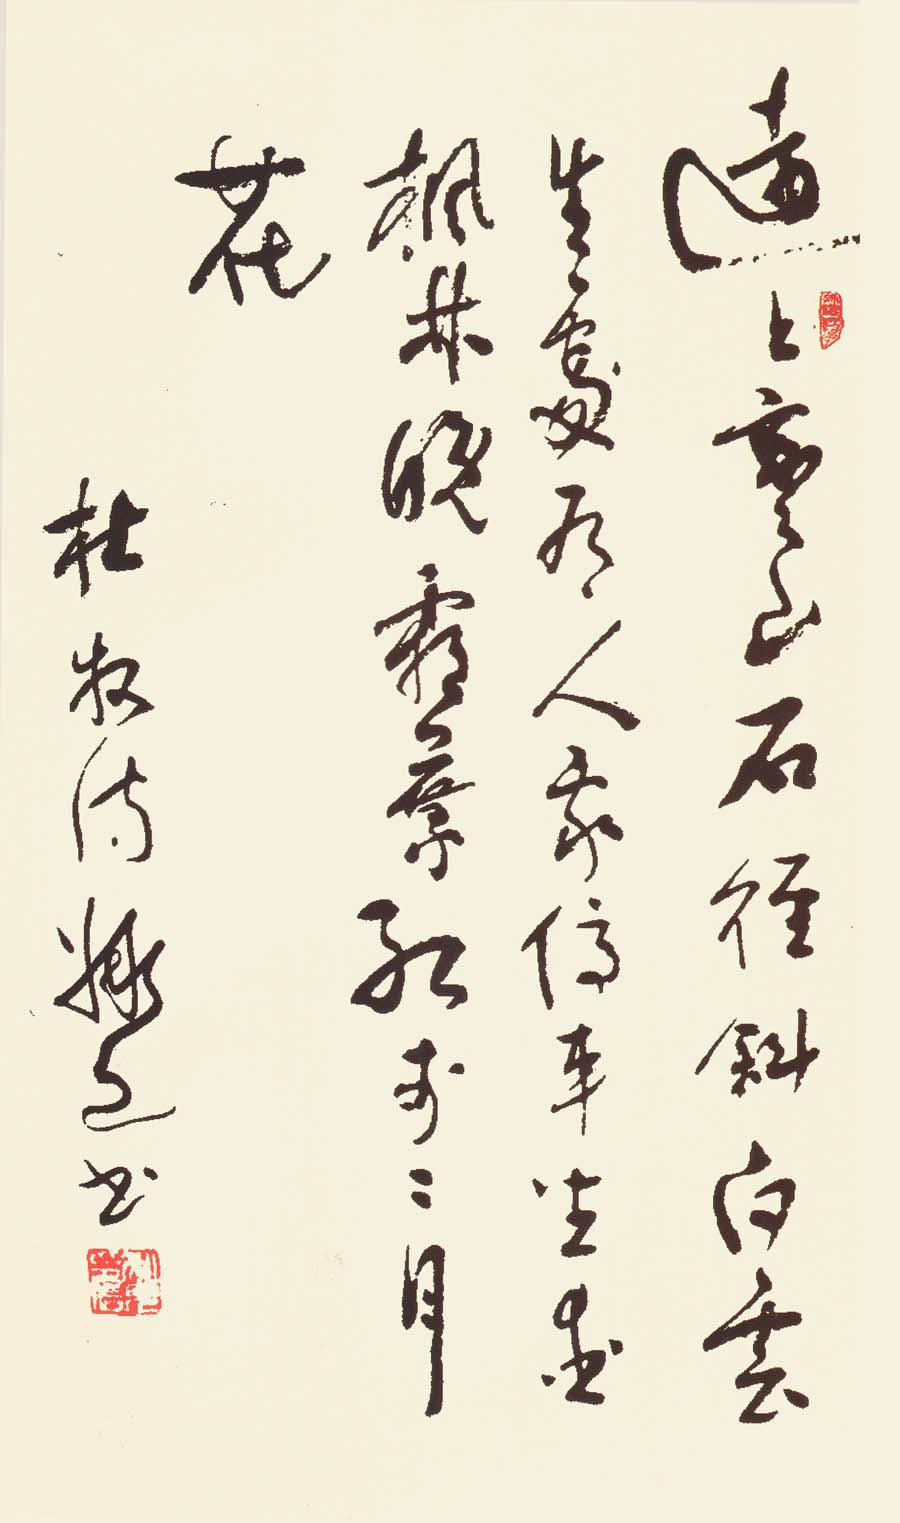 遠上寒山石徑斜白雲
生處有人家停車坐愛
楓林晚霜葉紅於二月
花
杜牧诗 书